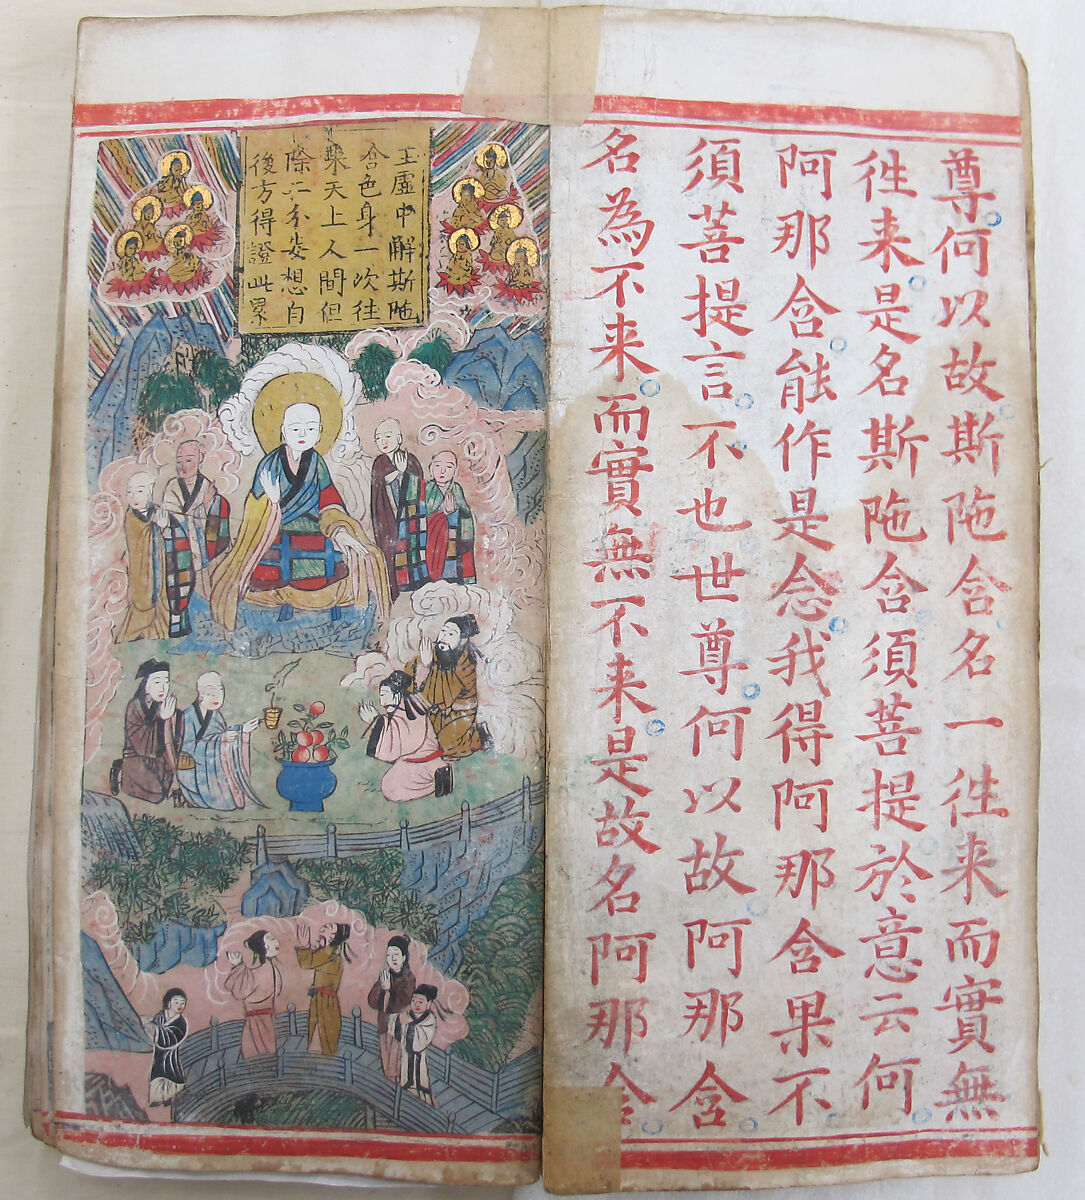 尊何以故斯陁含名一徃来而實無
徃来是名斯陁含須菩提於意云何
阿那含能作是念我得阿那含果不
須菩提言不也世尊何以故阿那含
名為不来而實無不来是故名阿那含
王虛中解斯陁
含色身一次往
來天上人間但
除分妄想自
後方得證此累